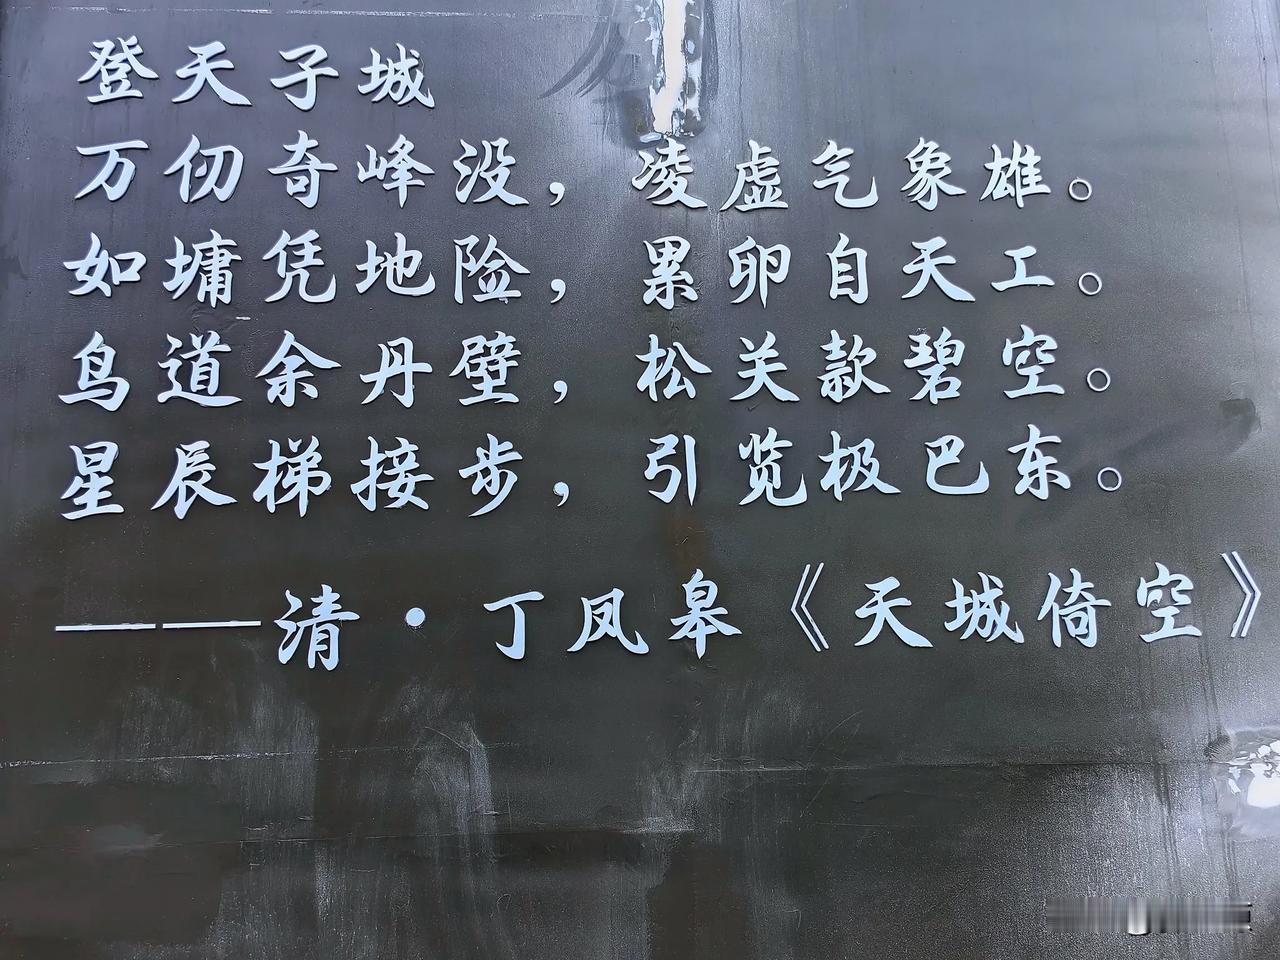 登天子城
万仞奇峰没，凌虚气象雄。
如墉凭地险，累卵自天工。
鸟道余丹壁，松关款碧空。
星辰梯接步，引览极巴东。
——清·丁凤皋《天城倚空》